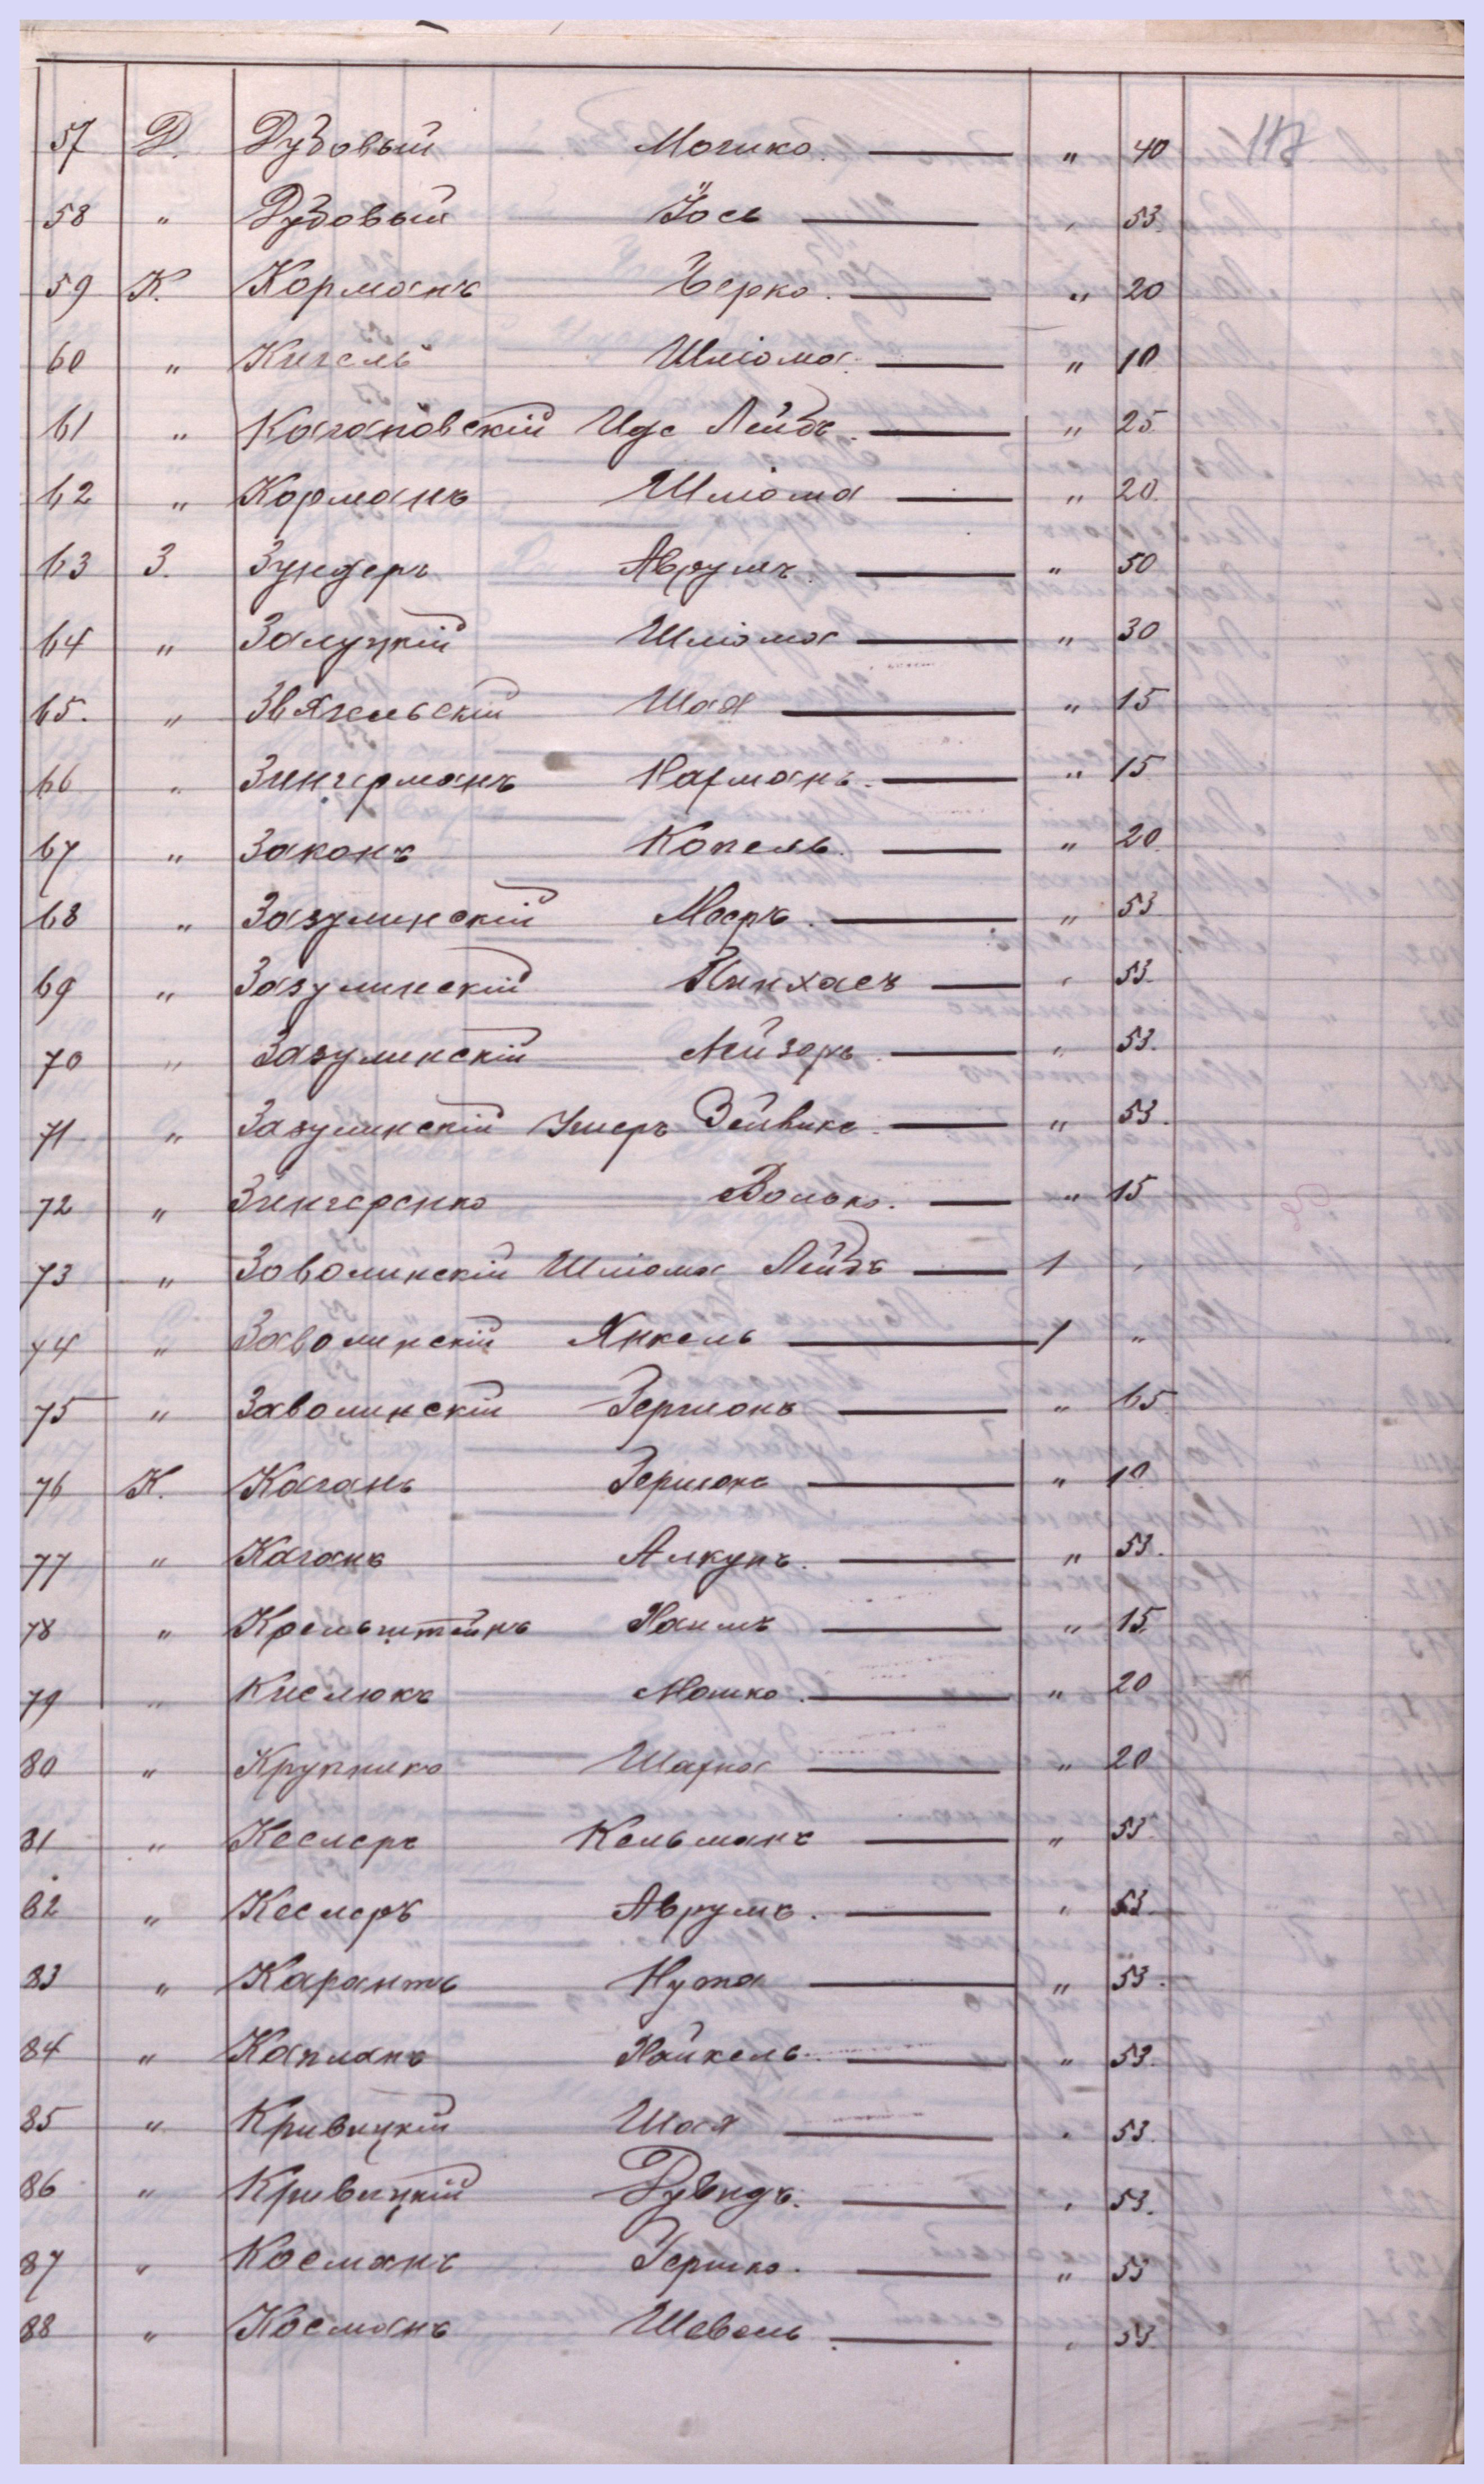 117
57 Д. Дубовый Мошко. — „ 40
58 „ Дубовый Іось — „ 53.
59 К. Корманъ Берко. — „ 20
60 „ Кигель Шліома. — „ 10
61 „ Кагановскій Идс Лейбъ. — „ 25
62 „ Корманъ Шліома — „ 20.
63 З. Зундеръ Аврумъ. — „ 50
64 „ Залуцкій Шліома — „ 30
65. „ Звягельскій Шая — „ 15
66 „ Зингерманъ Нахманъ. — „ 15
67 „ Законъ Копель. — „ 20.
68 „ Зазулинскій Мееръ. — „ 53
69 „ Зазулинскій Пинхасъ — „ 53.
70 „ Зазулинскій Лейзоръ. — „ 53.
71 „ Зазулинскій Ушеръ Зейвике. — „ 53.
72 „ Зингеренко Волько. — „ 15
73 „ Заволинскій Шліома Лейбъ — 1 „
74 „ Заволинскій Янкель — 1 „
75 „ Заволинскій Гершонъ — „ 65
76 К. Каганъ Гершонъ — „ 10.
77 „ Каганъ Алкунъ. — „ 53.
78 „ Хаимъ — „ 15.
79 „ Кислюкъ Мошко. — „ 20
80 „ Крупнико Шахна — „ 20
81 „ Кеслеръ Кельманъ — „ 53.
82 „ Кеслеръ Аврумъ. — „ 53
83 „ Карантъ Нута — „ 53.
84 „ Капланъ Хайкель. — „ 53.
85 „ Кривицкій Шая — „ 53.
86 „ Кривицкій Дувидъ. — „ 53.
87 „ Косманъ Гершко. — „ 53
88 „ Косманъ Шевель. — „ 53